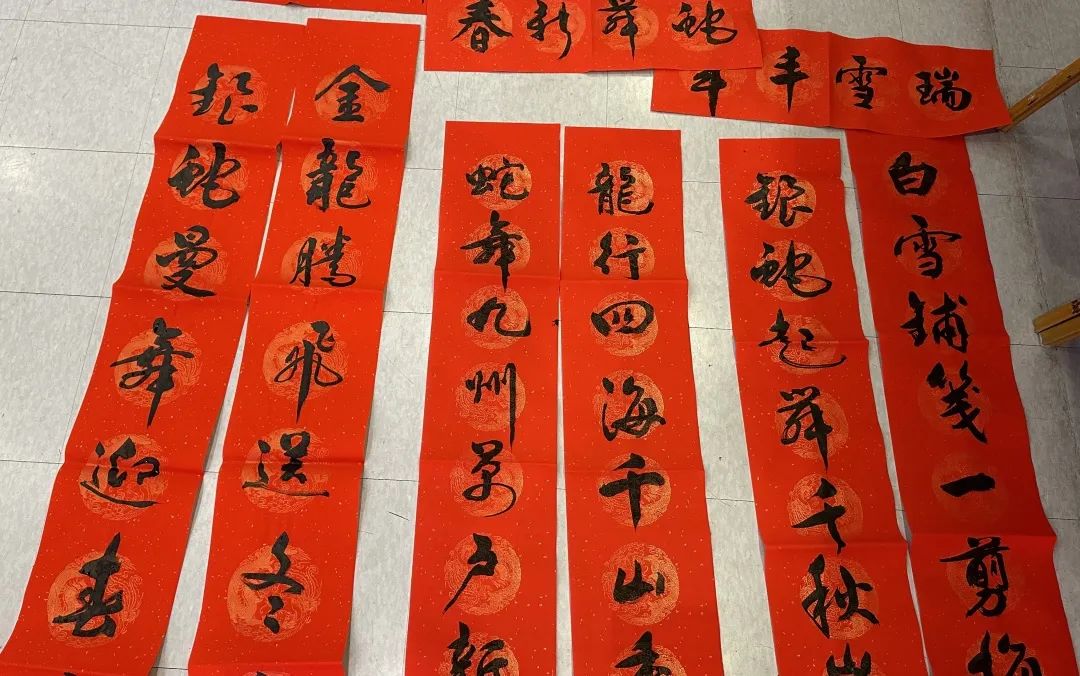 蛇舞新春
瑞雪丰年
白雪鋪箋一剪梅
銀蛇起舞千秋
龍行四海千山
蛇舞九州萬戶新
金龍騰飛送冬
銀蛇曼舞迎春